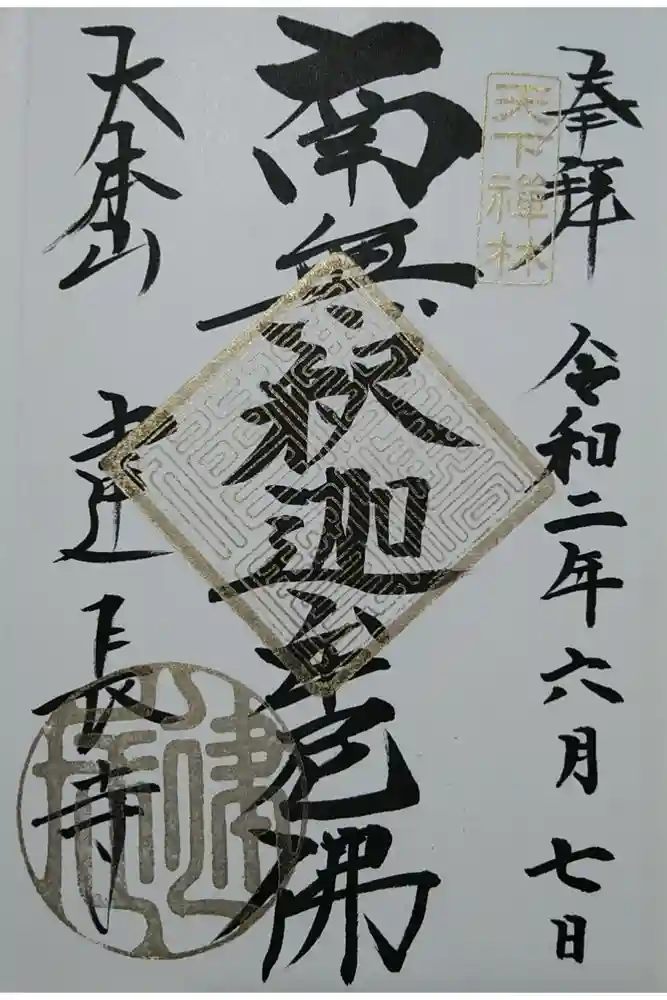 奉拝
天下禅林
令和二年六月七日
南無釈迦牟尼佛
大本山
建長寺